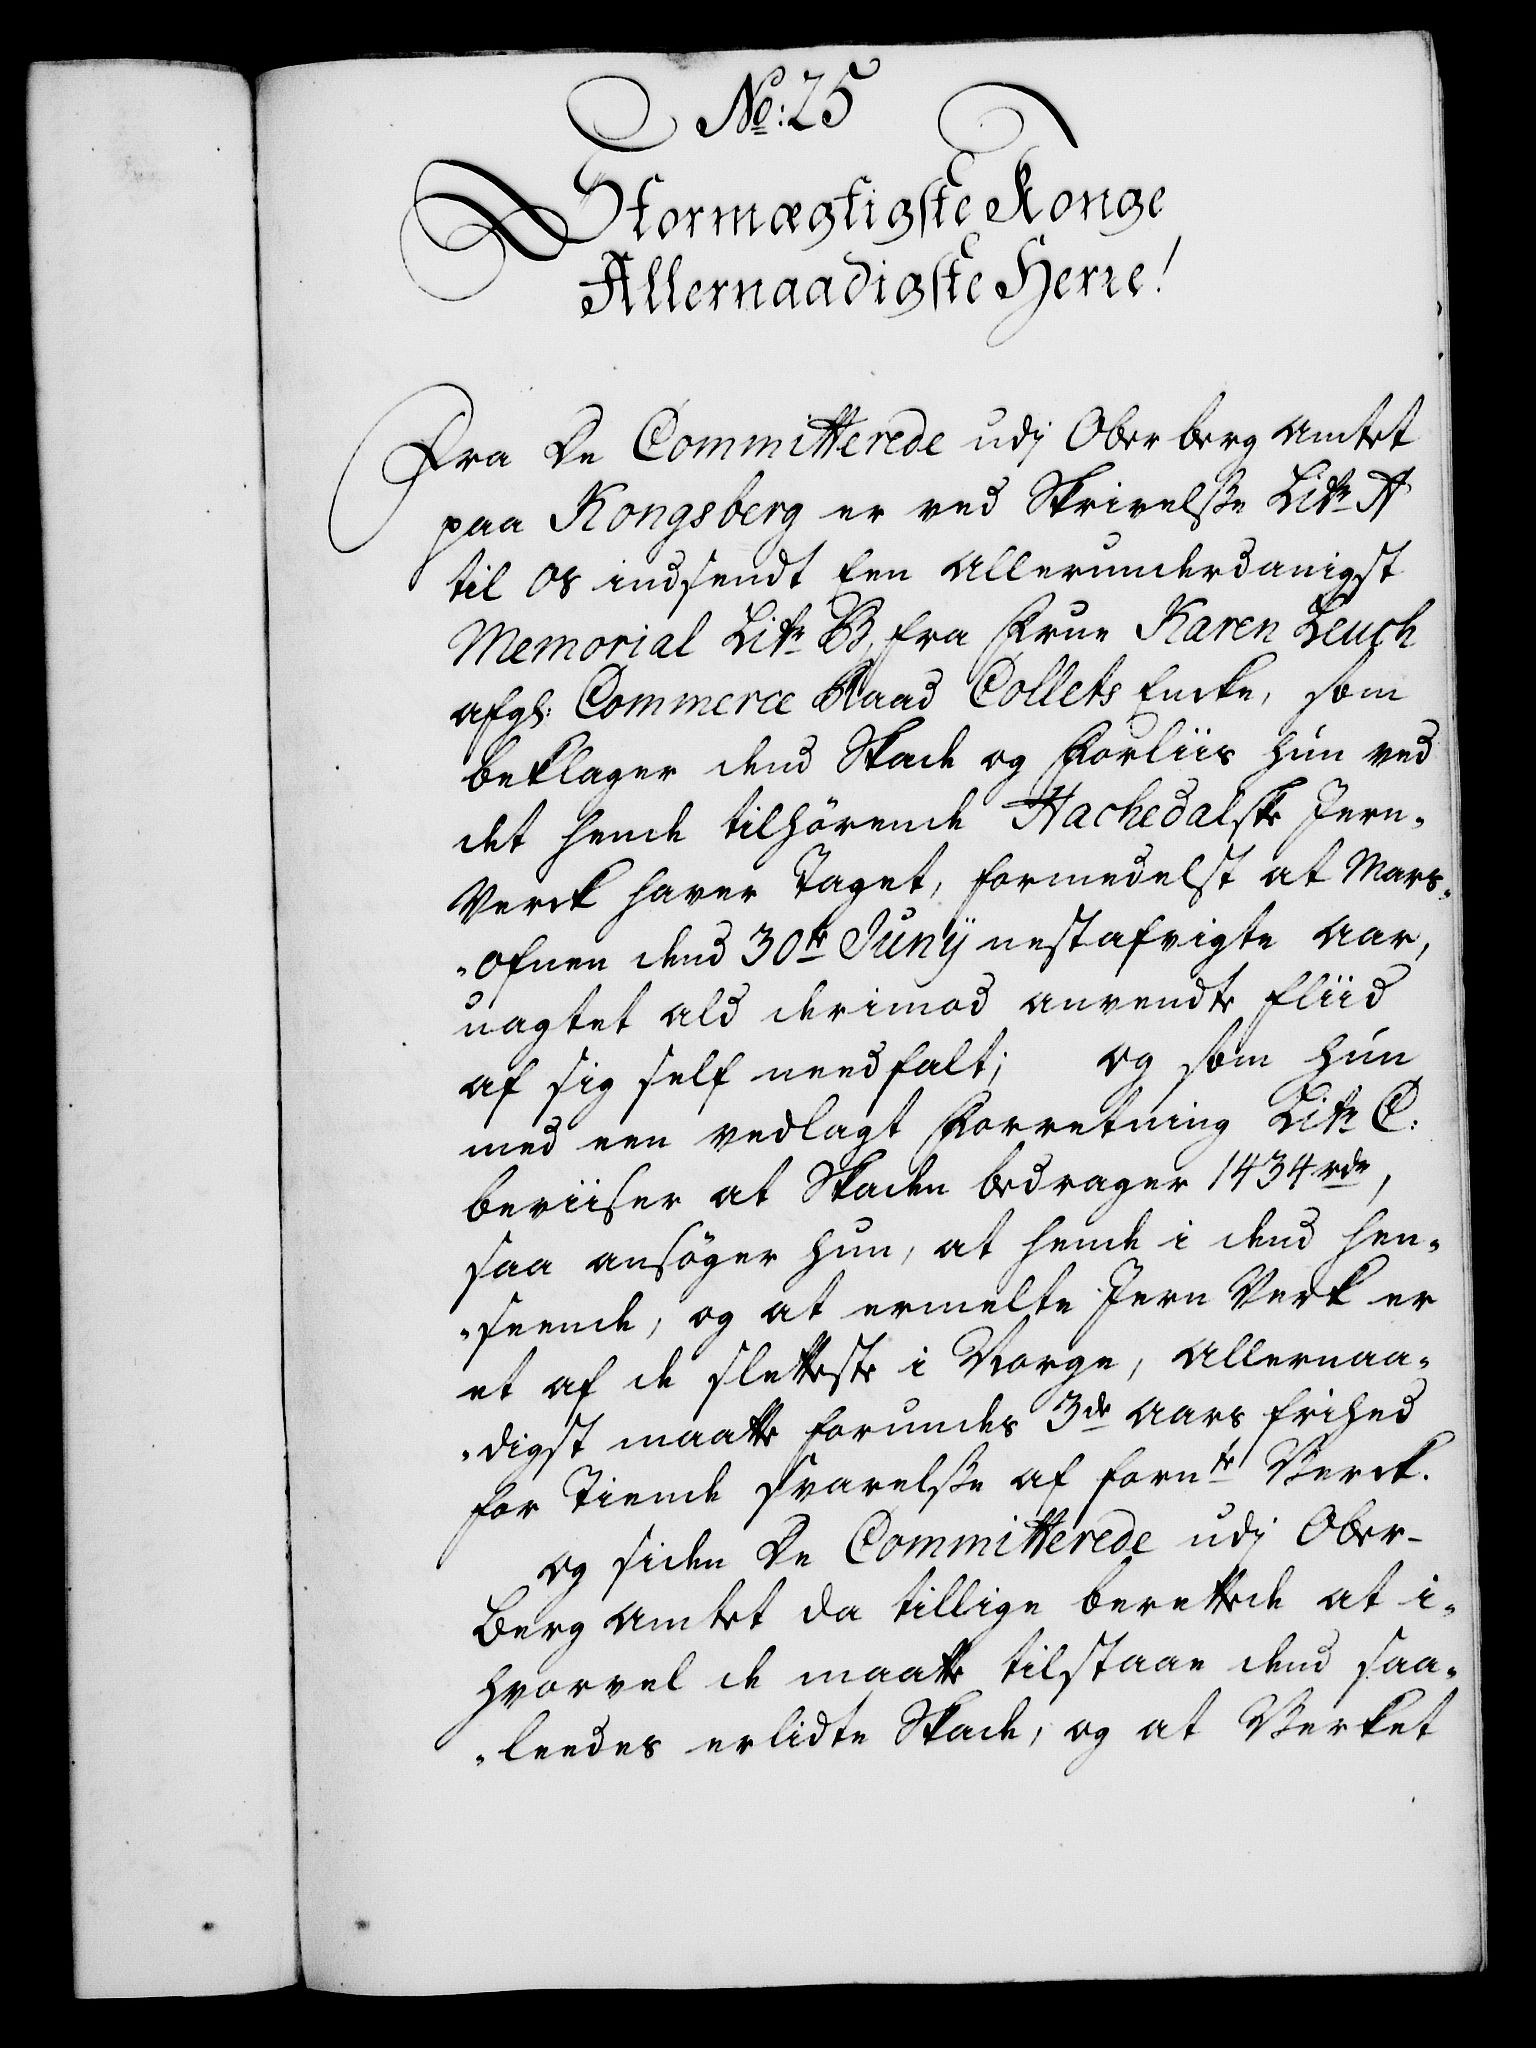 No: 25
Stormægtigste Konge
Allernaadigste Herre!
Fra De Committerede udj Oberberg Amtet
paa Kongsberg er ved Skrivelße Litr A
til os indsendt Een Allerunderdanigst
Memorial Litr B, fra Frue Karen Leuch
afgl: Commerce Raad Collets Encke, som
beklager dend Skade og Forliis hun ved
det hende tilhörende Hachedalske Jern-
Verck haver Taget, formedelst at Mars-
-ofnen dend 30te Junij nestafvigte Aar,
uagtet ald derimod anvendte Fliid
af sig self needfalt; og som hun
med een vedlagt Forretning Litr C:
beviiser at Skaden bedrager 1434 rdr,
saa ansöger hun, at hende i dend hen-
-seende, og at ermelte Jern Verk er
et af de sletteste i Norge, Allernaa-
-digst maatte forundes 3de Aars frihed
for Tiende Svarelße af fornte Verck.
og siden De Committerede udj Ober-
Berg Amtet da tillige berettede at i-
hvorvel de maatte tilstaae dend saa-
-leedes erlidte Skade, og at Verket